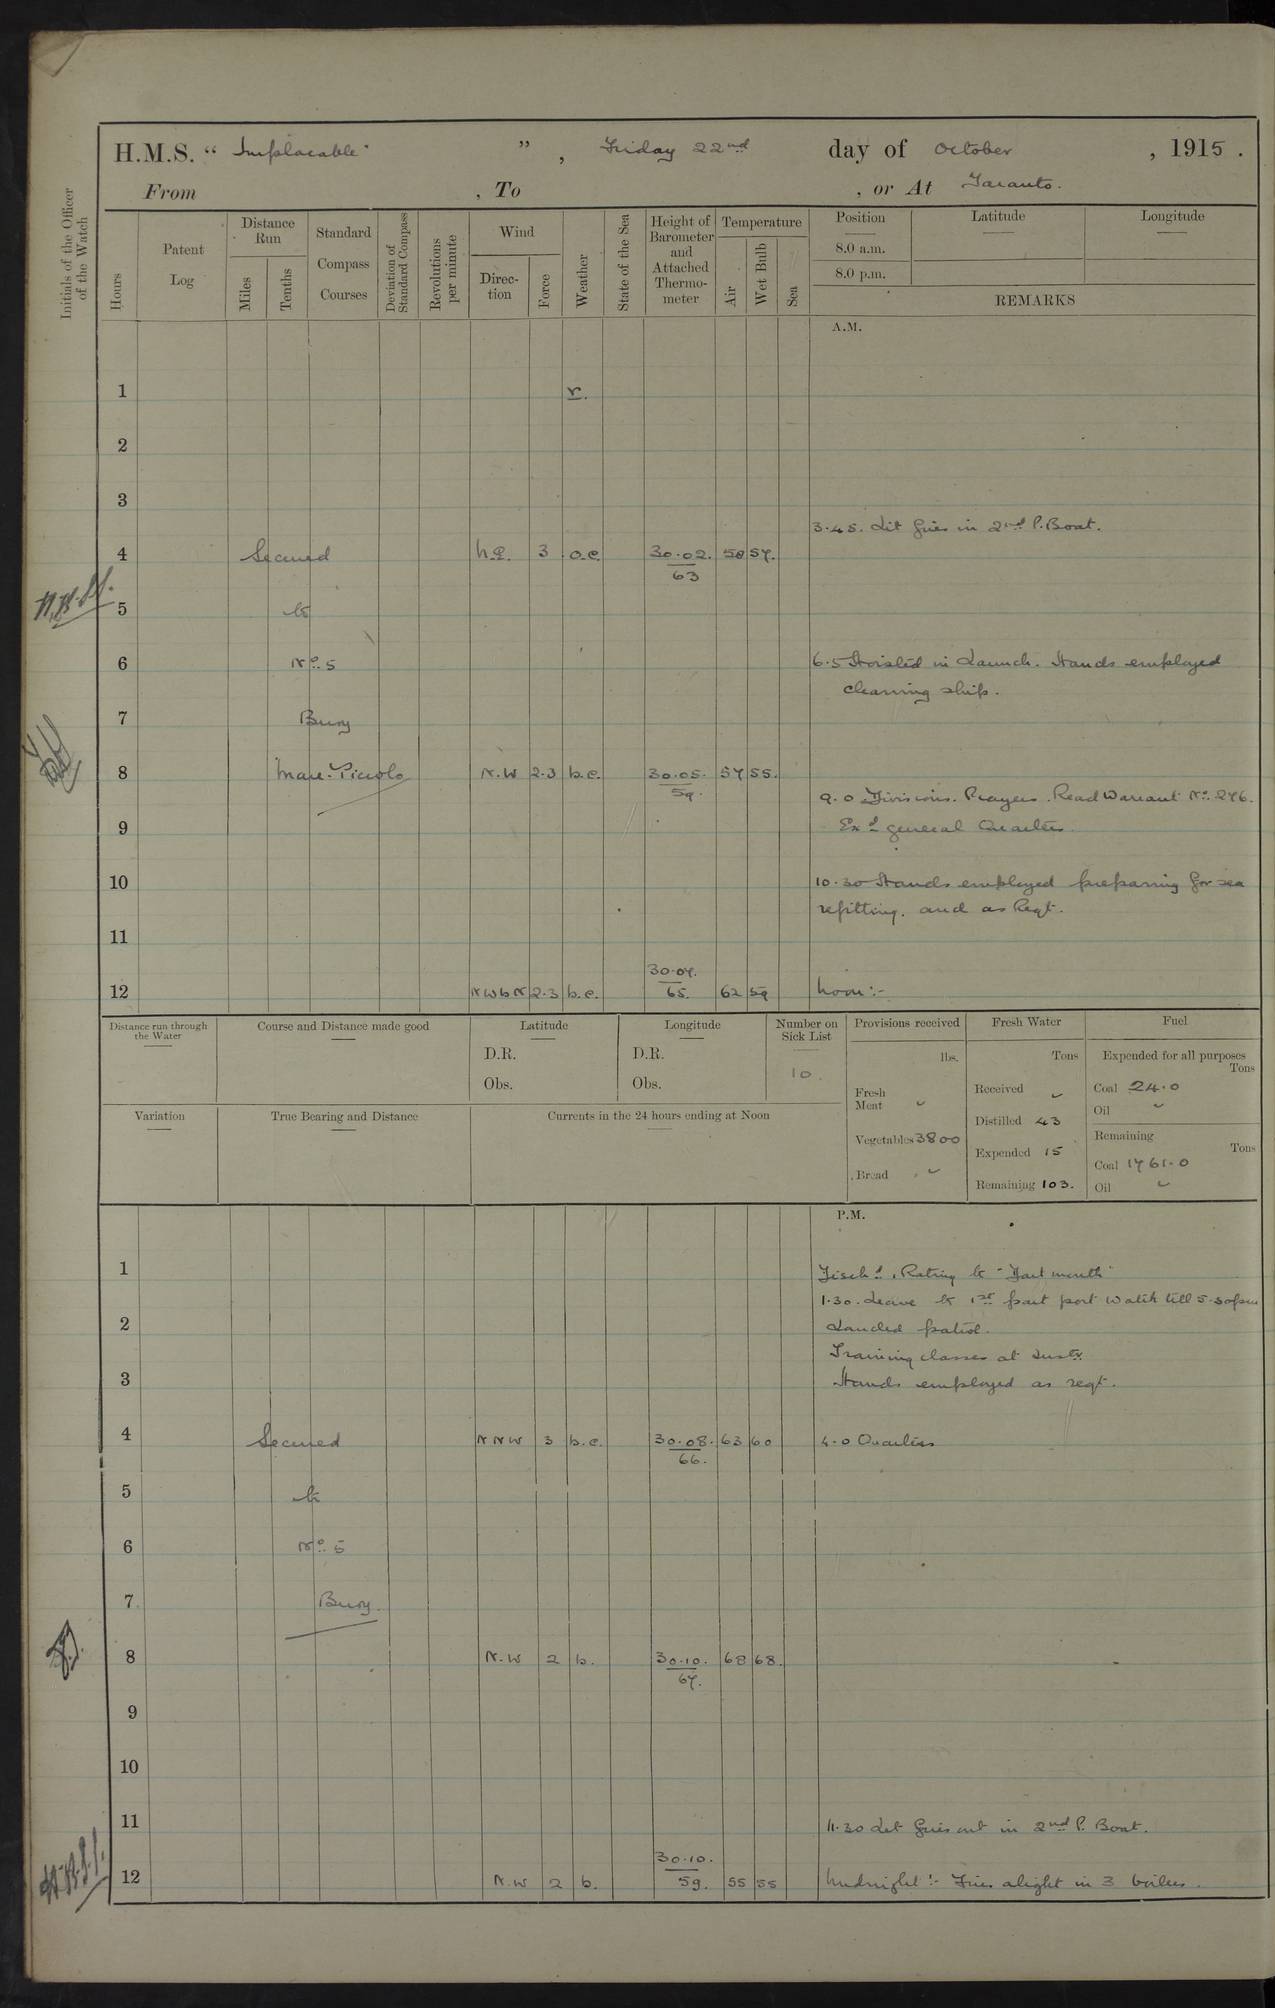 H.M.S. “ Implacable ” , Friday 22nd day of October , 1915 .
From , To , or At Taranto.
Initials of the Officer of the Watch
Hours
Patent Log
Distance Run
Miles
Tenths
Standard Compass Courses
Deviation of Standard Compass
Revolutions per minute
Wind
Direction
Force
Weather
State of the Sea
Height of Barometer and Attached Thermometer
Temperature
Air
Wet Bulb
Sea
Position Latitude Longitude
8.0 a.m.
8.0 p.m.
REMARKS
A.M.
1 r.
2
3
3.45. Lit fires in 2nd P. Boat.
4 Secured N.E. 3 o.c. 30.02. 58 57.
63
5 to
6 No. 5 6.5 Hoisted in Launch. Hands employed
cleaning ship.
7 Buoy
8 Mare Piccolo N.W 2.3 b.c. 30.05. 57 55.
59.
9.0 Divisions. Prayers. Read Warrant No. 276.
9 Exd general Quarters
10 10.30 Hands employed preparing for sea
refitting. and as Reqt.
11
30.07.
12 NWbN 2.3 b.c. 65. 62 59 Noon :-
Distance run through the Water
Course and Distance made good
Latitude
D.R.
Obs.
Longitude
D.R.
Obs.
Number on Sick List
10.
Provisions received
lbs.
Fresh Meat
Vegetables 3800
Bread
Fresh Water
Tons
Received
Distilled 43
Expended 15
Remaining 103.
Fuel
Expended for all purposes
Tons
Coal 24.0
Oil
Remaining
Tons
Coal 1761.0
Oil
Variation
True Bearing and Distance
Currents in the 24 hours ending at Noon
P.M.
1 Disch'd 1 Rating to "Dartmouth"
1.30. Leave to 1st part port watch till 5.30pm
2 Landed patrol.
Training classes at Instr.
3 Hands employed as reqt.
4 Secured NNW 3 b.c. 30.08. 63 60 4.0 Quarters
66.
5 to
6 No. 5
7 Buoy.
8 N.W 2 b. 30.10. 68 68.
67.
9
10
11 11.30 Let fires out in 2nd P. Boat.
30.10.
12 N.W 2 b. 59. 55 55 Midnight :- Fires alight in 3 boilers.